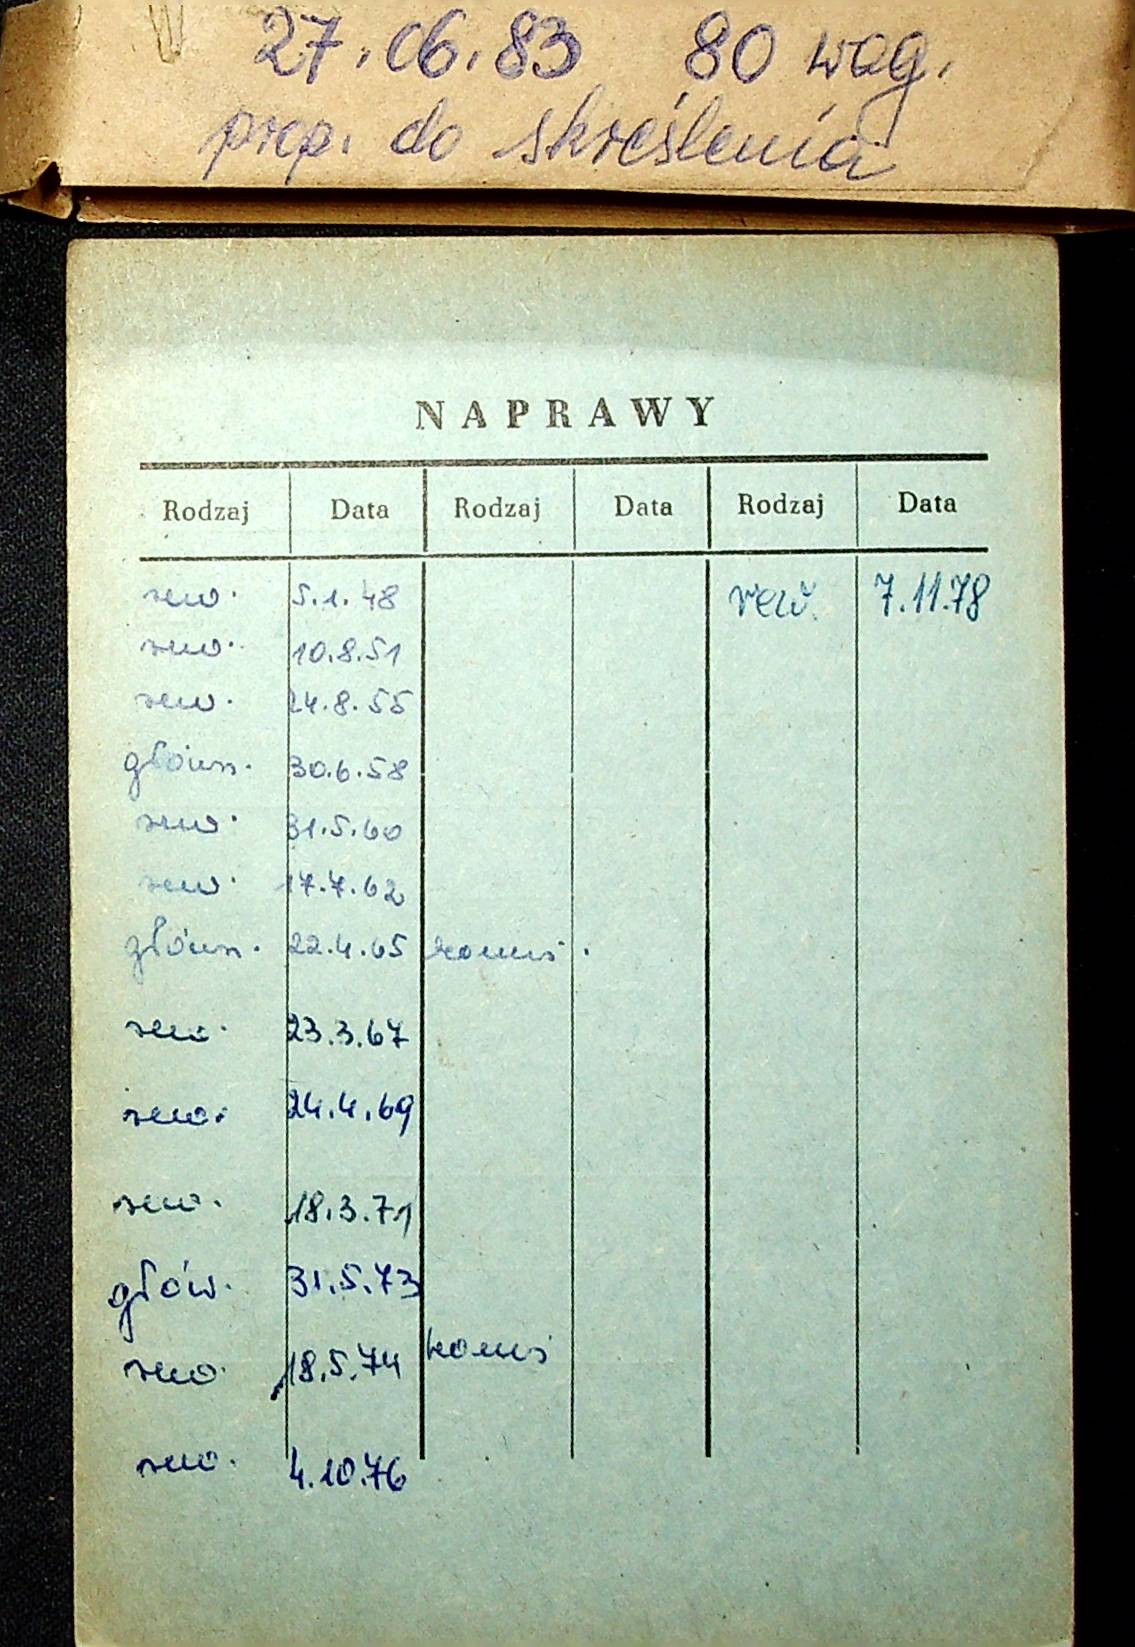 27.06.83 80 wag.
prop. do skreślenia
NAPRAWY
Rodzaj Data Rodzaj Data Rodzaj Data
rew. 5.1.48 rew. 7.11.78
rew. 10.8.51
rew. 24.8.55
główn. 30.6.58
rew. 31.5.60
rew. 17.7.62
główn. 22.4.65
rew. 23.3.67
rew. 24.4.69
rew. 18.3.71
głów. 31.5.73
rew. 18.5.74
rew. 4.10.76